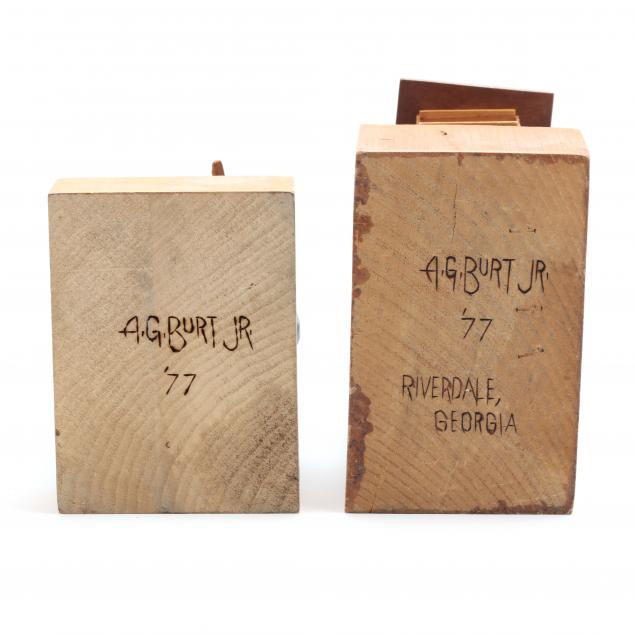 A.G.BURT JR.
'77
A.G.BURT JR.
'77
RIVERDALE,
GEORGIA